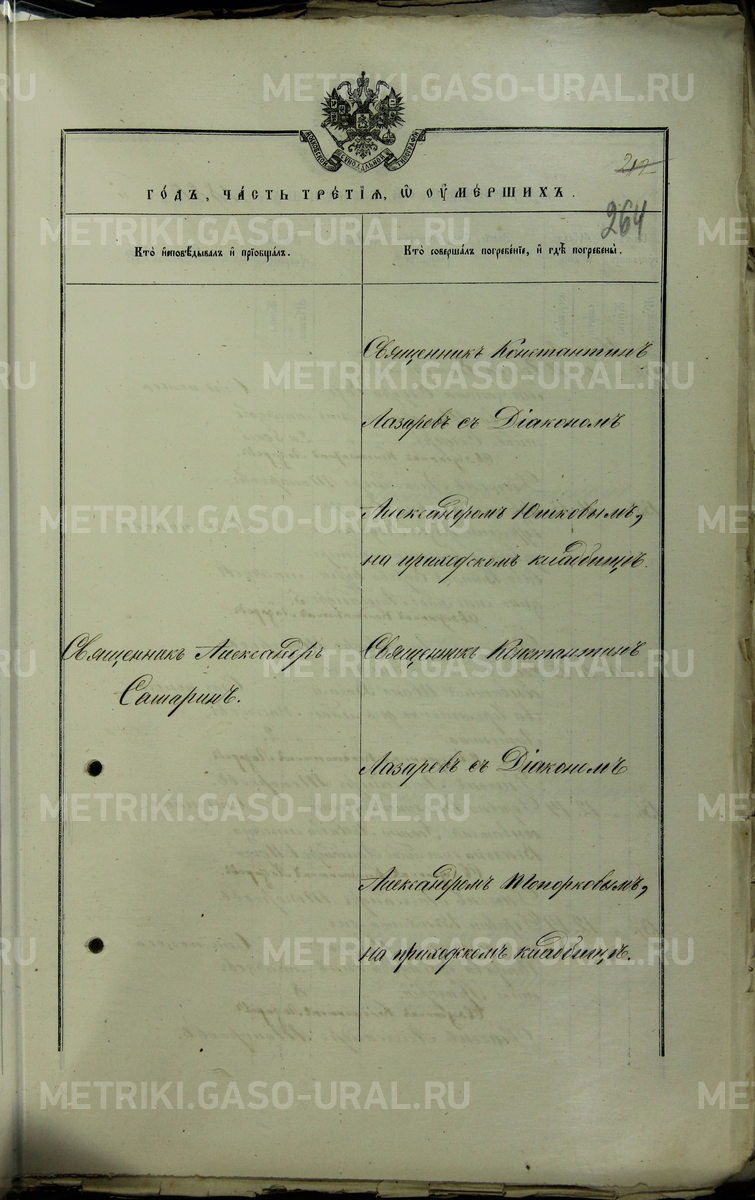 METRIKI.GASO-URAL.RU
МОСКОВСКОЙ СѴНОДАЛЬНОЙ ТИПОГРАФІИ
212
ГО́ДЪ, ЧА́СТЬ ТРЕ́ТІѦ, Ѡ҆ ОУ҆МЕ́РШИХЪ.
264
Кто̀ и҆сповѣ́дывалъ и҆ прїѡбща́лъ.
Кто̀ соверша́лъ погребе́нїе, и҆ гдѣ̀ погребены̀.
Священникъ Константинъ
Лазаревъ съ Діакономъ
Александромъ Юшковымъ,
на приходскомъ кладбищѣ.
Священникъ Александръ
Сатаринъ.
Священникъ Константинъ
Лазаревъ съ Діакономъ
Александромъ Топорковымъ,
на приходскомъ кладбищѣ.